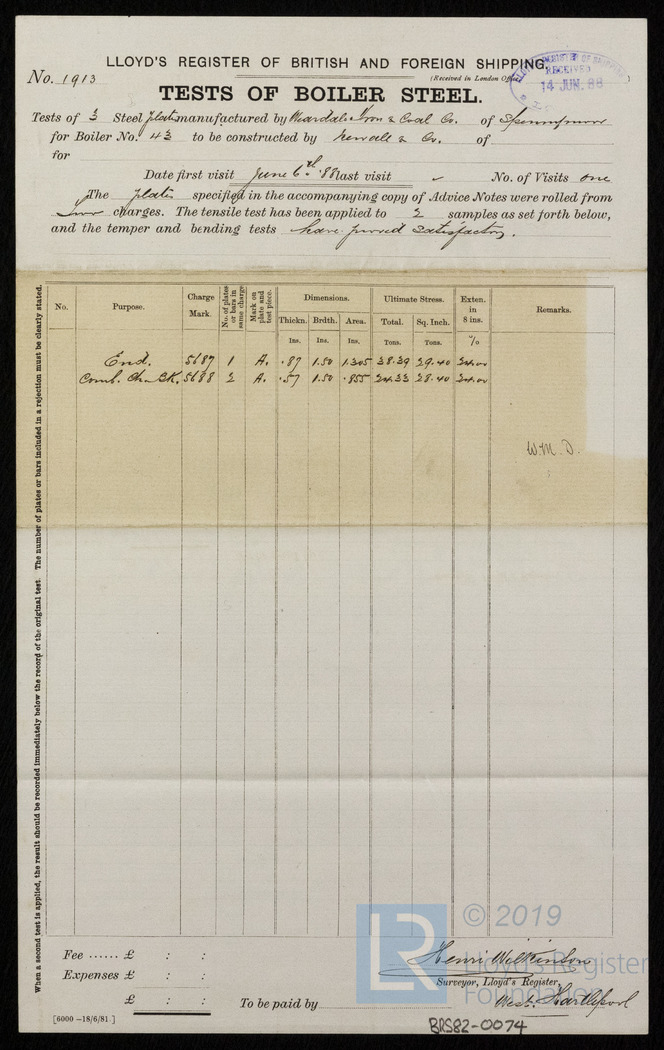 LLOYD'S REGISTER OF BRITISH AND FOREIGN SHIPPING.
No. 1913
(Received in London Office
RECEIVED
14 JUN. 88
TESTS OF BOILER STEEL.
Tests of 3 Steel plates manufactured by Weardale Iron & Coal Co. of Spennymoor
for Boiler No. 43 to be constructed by & Co. of
for
Date first visit June 6th '88 last visit No. of Visits one
The plates specified in the accompanying copy of Advice Notes were rolled from
two charges. The tensile test has been applied to 2 samples as set forth below,
and the temper and bending tests have proved satisfactory.
When a second test is applied, the result should be recorded immediately below the record of the original test. The number of plates or bars included in a rejection must be clearly stated.
No. Purpose. Charge Mark. No. of plates or bars in same charge Mark on plate and test piece. Dimensions. Ultimate Stress. Exten. in 8 ins. Remarks.
Thickn. Brdth. Area. Total. Sq. Inch.
Ins. Ins. Ins. Tons. Tons. %
End. 5687 1 A. .87 1.50 1.305 38.39 29.40 24.00
Comb. Ch. BK. 5688 2 A. .57 1.50 .855 24.33 28.40 24.00
W.M. D.
© 2019
LR
Lloyd's Register
Foundation
Fee ...... £ : :
Expenses £ : :
£ : :
To be paid by
Henri Wilkinson
Surveyor, Lloyd's Register,
West Hartlepool
[6000 –18/6/81.]
BRS82-0074